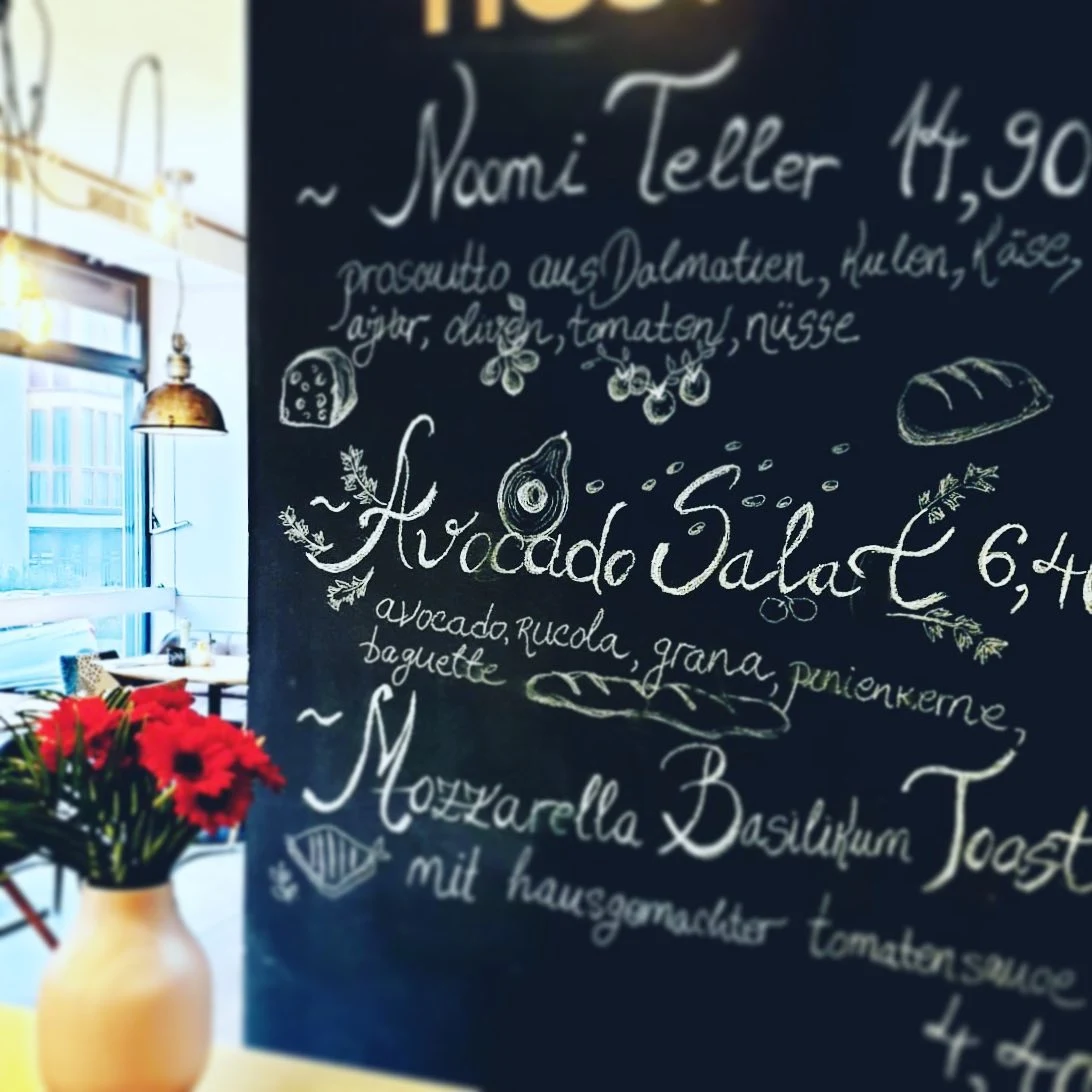 ~ Noomi Teller 14,90
prosciutto aus Dalmatien, Kulen, Käse,
ajvar, oliven, tomaten, nüsse
~ Avocado Salat 6,40
avocado, Rucola, grana, pinienkerne,
baguette
~ Mozzarella Basilikum Toast
mit hausgemachter tomatensauce
4,40